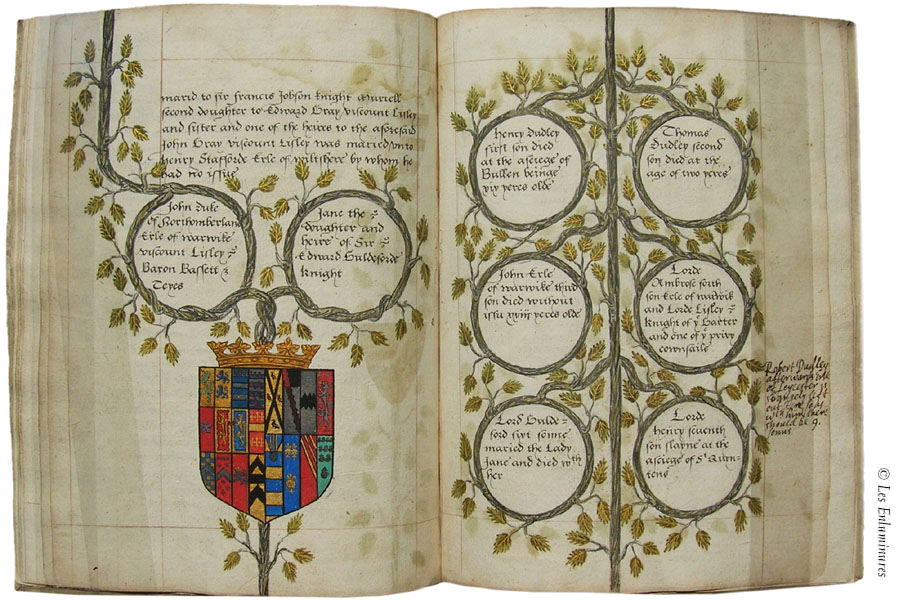 marid to sir francis Jobson knight Murrell
second doughter to Edward Gray viscount Lisley
and sister and one of the heires to the aforesaid
John Gray viscount Lisley was maried unto
Henry Stafforde Erle of wilshere by whom he
had no issue
John Duke
of Northomberlan
Erle of warwike
viscount Lisley
Baron Bassett &
Teyes
Jane the
doughter and
heire of Sir
Edward Guldeforde
knight
Henry Dudley
first son died
at the asciege of
Bullen beinge
xix yeres olde
Thomas
Dudley second
son died at the
age of two yeres
John Erle
of warwike third
son died without
issu xxiiij yeres olde
Lord
Ambrose forth
son Erle of warwik
and Lorde Lisley
knight of yͤ Garter
and one of yͤ privy
cownsaile
Lord Gulde=
ford sixt sonne
maried the Lady
Jane and died wth
her
Lorde
henry seventh
son slayne at the
asciege of St Quin=
tens
Robert Dudley
afterwards Erle
of Leycester is
left
out
with him there
should be 9.
sonns.
© Les Enluminures